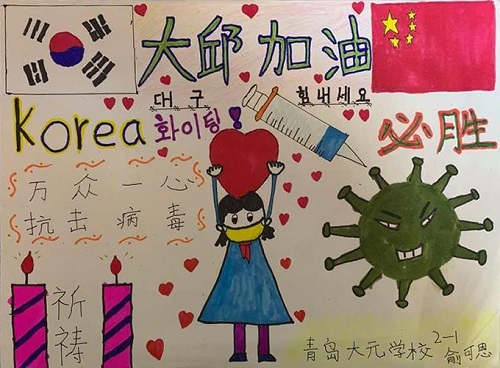 大邱加油
대구 힘내세요
Korea 화이팅!
必胜
万众一心
抗击病毒
祈祷
青岛大元学校 2-1
俞可恩